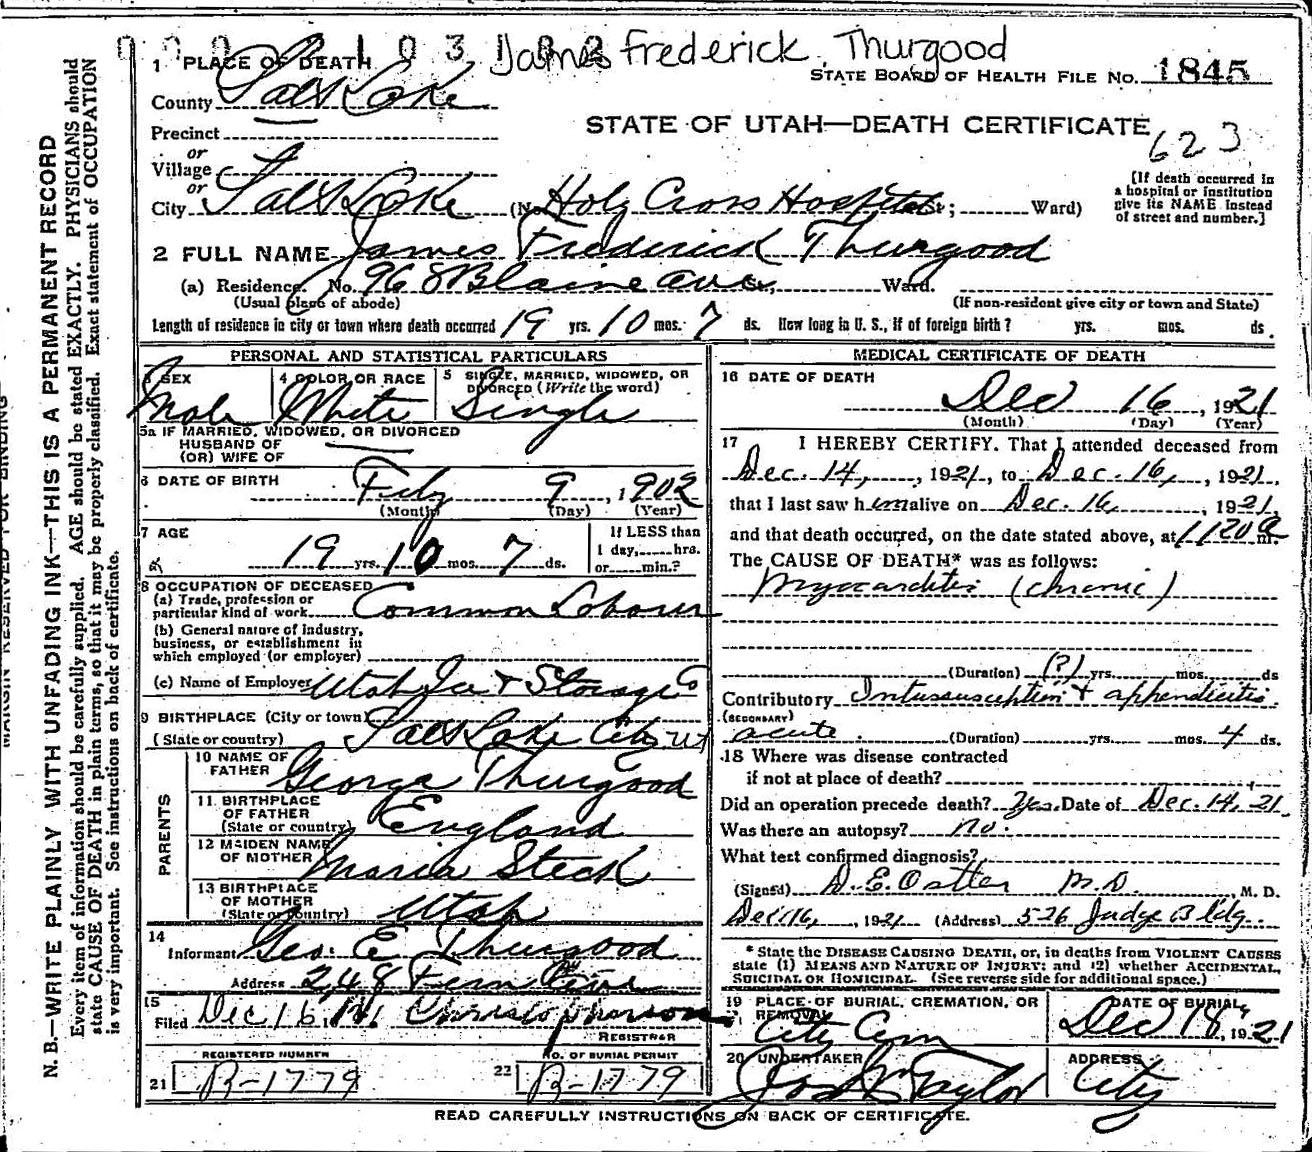 James Frederick Thurgood
1 PLACE OF DEATH
STATE BOARD OF HEALTH FILE NO. 1845
County Salt Lake
STATE OF UTAH—DEATH CERTIFICATE
623
Precinct
or
Village
or
City Salt Lake (No. Holy Cross Hospital St; Ward)
[If death occurred in
a hospital or institution
give its NAME instead
of street and number.]
2 FULL NAME James Frederick Thurgood
(a) Residence. No. 968 Blaine Ave St., Ward.
(Usual place of abode) (If non-resident give city or town and State)
Length of residence in city or town where death occurred 19 yrs. 10 mos. 7 ds. How long in U. S., if of foreign birth? yrs. mos. ds.
PERSONAL AND STATISTICAL PARTICULARS
3 SEX
Male
4 COLOR OR RACE
White
5 SINGLE, MARRIED, WIDOWED, OR
DIVORCED (Write the word)
Single
5a IF MARRIED, WIDOWED, OR DIVORCED
HUSBAND OF
(OR) WIFE OF
6 DATE OF BIRTH
Feby 9, 1902
(Month) (Day) (Year)
7 AGE
19 yrs. 10 mos. 7 ds.
If LESS than
1 day, hrs.
or min.?
8 OCCUPATION OF DECEASED
(a) Trade, profession or
particular kind of work Common Laborer
(b) General nature of industry,
business, or establishment in
which employed (or employer)
(c) Name of Employer Utah Ice & Storage Co
9 BIRTHPLACE (City or town)
(State or country) Salt Lake City Ut
PARENTS
10 NAME OF
FATHER George Thurgood
11 BIRTHPLACE
OF FATHER
(State or country) England
12 MAIDEN NAME
OF MOTHER Maria Steck
13 BIRTHPLACE
OF MOTHER
(State or country) Utah
14
Informant Geo. E Thurgood
Address 248 Fern Ave
15
Filed Dec 16, Christopherson
REGISTRAR
REGISTERED NUMBER
21 B-1779
NO. OF BURIAL PERMIT
22 B-1779
MEDICAL CERTIFICATE OF DEATH
16 DATE OF DEATH
Dec 16, 1921
(Month) (Day) (Year)
17 I HEREBY CERTIFY. That I attended deceased from
Dec. 14, 1921, to Dec. 16, 1921,
that I last saw him alive on Dec. 16, 1921,
and that death occurred, on the date stated above, at 1120 a m.
The CAUSE OF DEATH* was as follows:
Myocarditis (chronic)
(Duration) (?) yrs. mos. ds
Contributory Intussusception & appendicitis
(SECONDARY)
acute. (Duration) yrs. mos. 4 ds.
18 Where was disease contracted
if not at place of death?
Did an operation precede death? Yes. Date of Dec. 14, '21
Was there an autopsy? no.
What test confirmed diagnosis?
(Signed) D. E. Ostler M.D., M. D.
Dec. 16, 1921 (Address) 526 Judge Bldg.
* State the DISEASE CAUSING DEATH, or, in deaths from VIOLENT CAUSES
state (1) MEANS AND NATURE OF INJURY; and (2) whether ACCIDENTAL,
SUICIDAL OR HOMICIDAL. (See reverse side for additional space.)
19 PLACE OF BURIAL, CREMATION, OR
REMOVAL
City Cem
DATE OF BURIAL
Dec 18, 1921
20 UNDERTAKER
Jos Wm Taylor
ADDRESS
City
READ CAREFULLY INSTRUCTIONS ON BACK OF CERTIFICATE.
N. B.—WRITE PLAINLY WITH UNFADING INK—THIS IS A PERMANENT RECORD
Every item of information should be carefully supplied. AGE should be stated EXACTLY. PHYSICIANS should
state CAUSE OF DEATH in plain terms, so that it may be properly classified. Exact statement of OCCUPATION
is very important. See instructions on back of certificate.
MARGIN RESERVED FOR BINDING